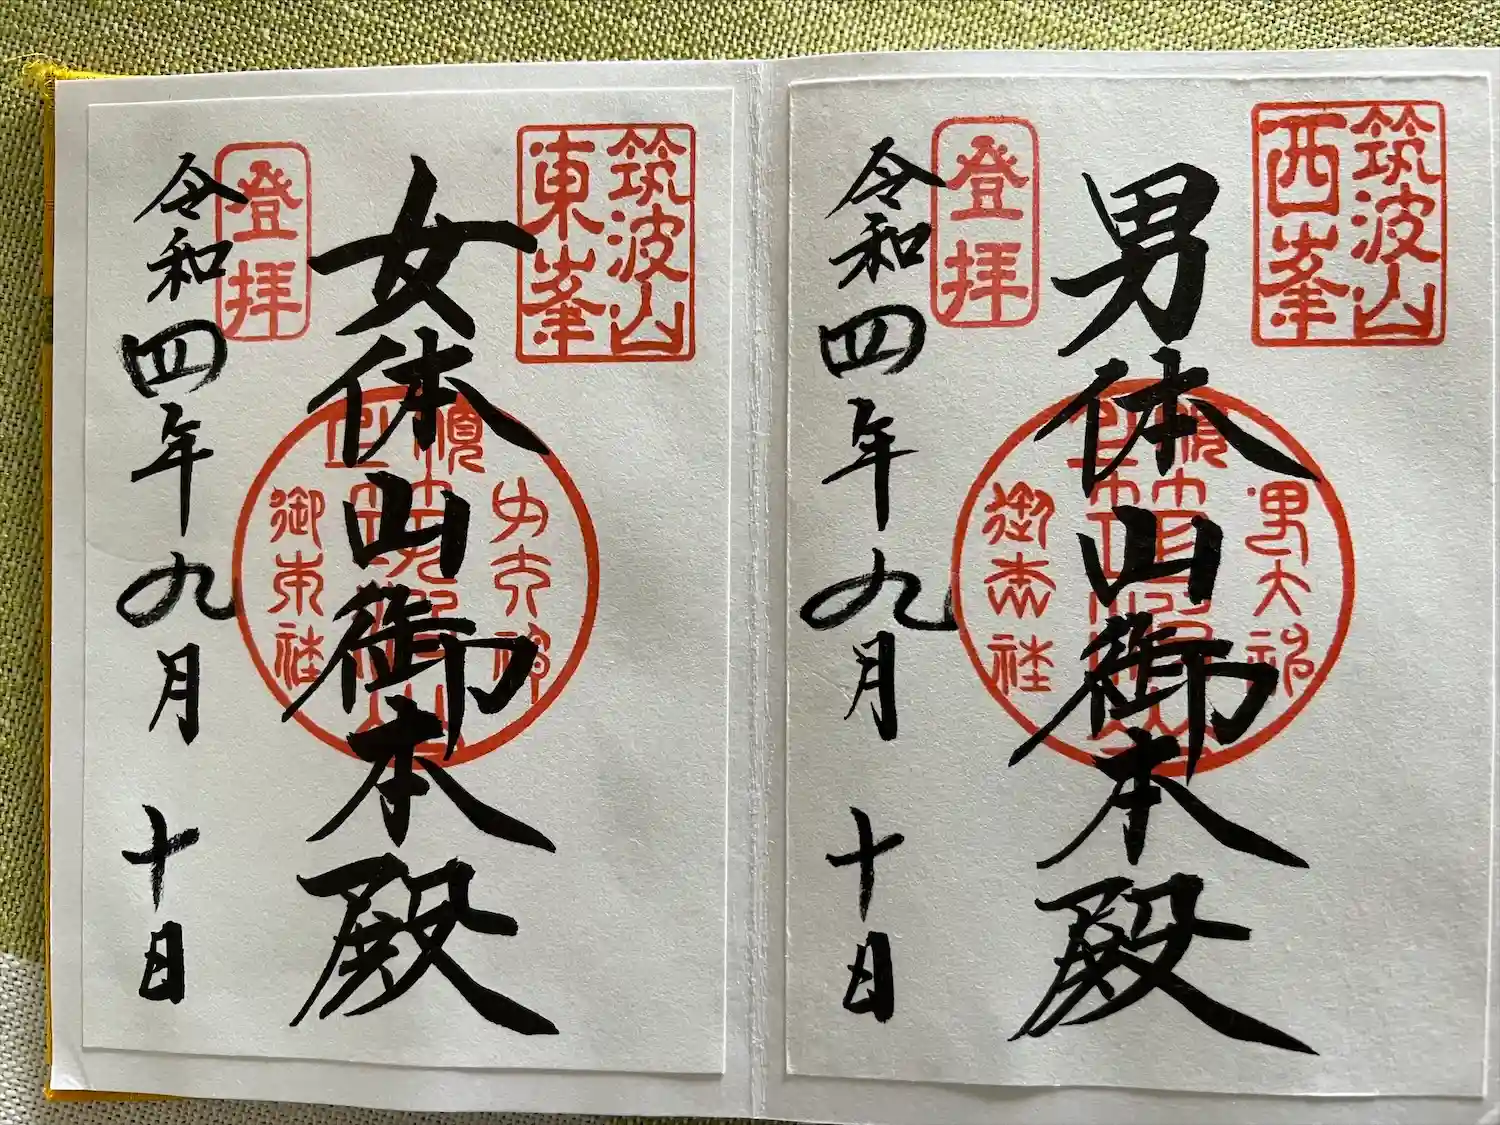 筑波山
西峯
男体山御本殿
登拝
令和四年九月十日
男大神
御本社
筑波山
東峯
女体山御本殿
登拝
令和四年九月十日
御本社